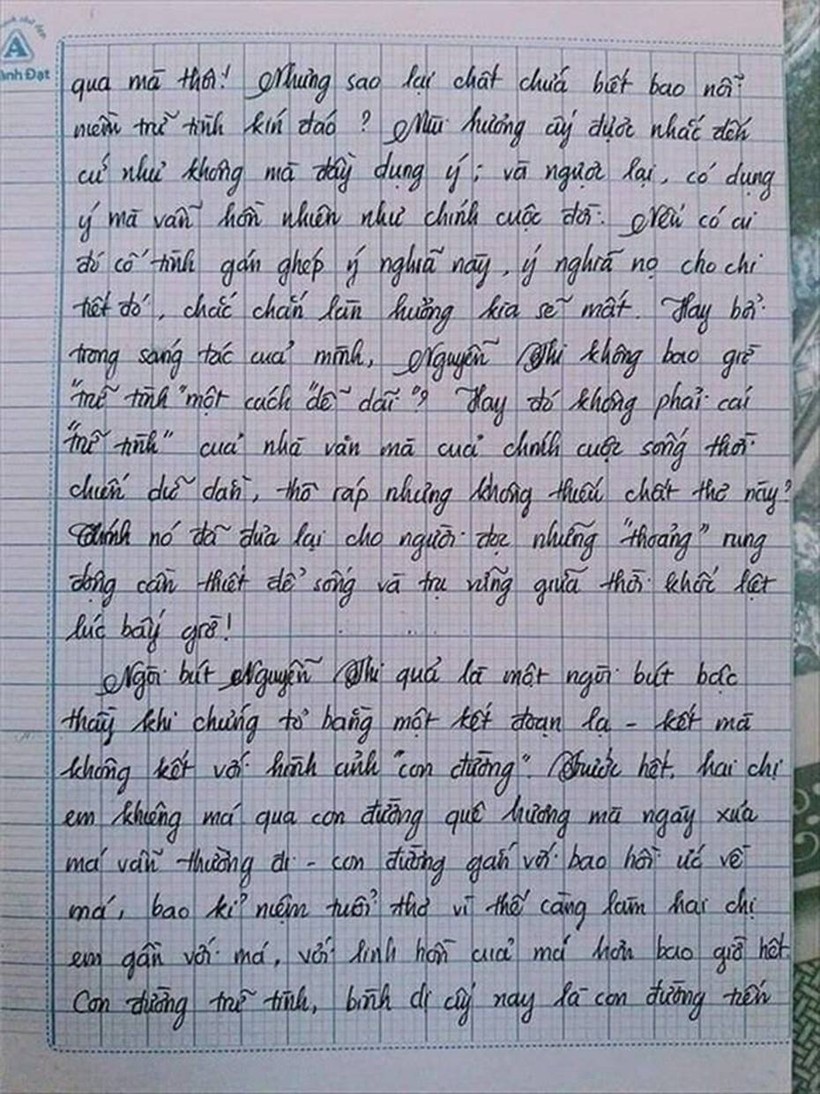 A
ành Đạt
qua mà thôi! Nhưng sao lại chất chứa biết bao nỗi
niềm trữ tình kín đáo? Mùi hương ấy được nhắc đến
cứ như không mà đầy dụng ý; và ngược lại, có dụng
ý mà vẫn hồn nhiên như chính cuộc đời. Nếu có ai
đó cố tình gán ghép ý nghĩa này, ý nghĩa nọ cho chi
tiết đó, chắc chắn làn hương kia sẽ mất. Hay bởi
trong sáng tác của mình, Nguyễn Thi không bao giờ
"trữ tình" một cách "dễ dãi"? Hay đó không phải cái
"trữ tình" của nhà văn mà của chính cuộc sống thời
chiến dữ dằn, thô ráp nhưng không thiếu chất thơ này?
Chính nó đã đưa lại cho người đọc những "thoáng" rung
động cần thiết để sống và trụ vững giữa thời khốc liệt
lúc bấy giờ!
Ngòi bút Nguyễn Thi quả là một ngòi bút bậc
thầy khi chứng tỏ bằng một kết đoạn lạ - kết mà
không kết với hình ảnh "con đường". Trước hết, hai chị
em khiêng má qua con đường quê hương mà ngày xưa
má vẫn thường đi - con đường gắn với bao hồi ức về
má, bao kỉ niệm tuổi thơ vì thế càng làm hai chị
em gần với má, với linh hồn của má hơn bao giờ hết.
Con đường trữ tình, bình dị ấy nay là con đường tiến